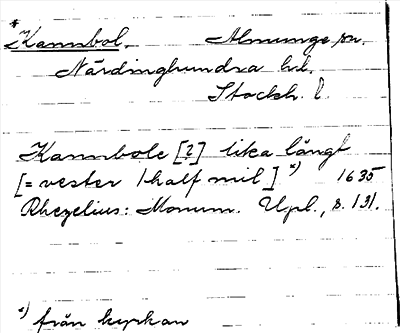 *Kannbol. Almunge sn.
Närdinghundra hd.
Stockh. l.
Kannbole [?] lika långt
[= vester 1 half mil] x) 1635
Rhezelius: Monum. Upl., s. 131.
x) från kyrkan